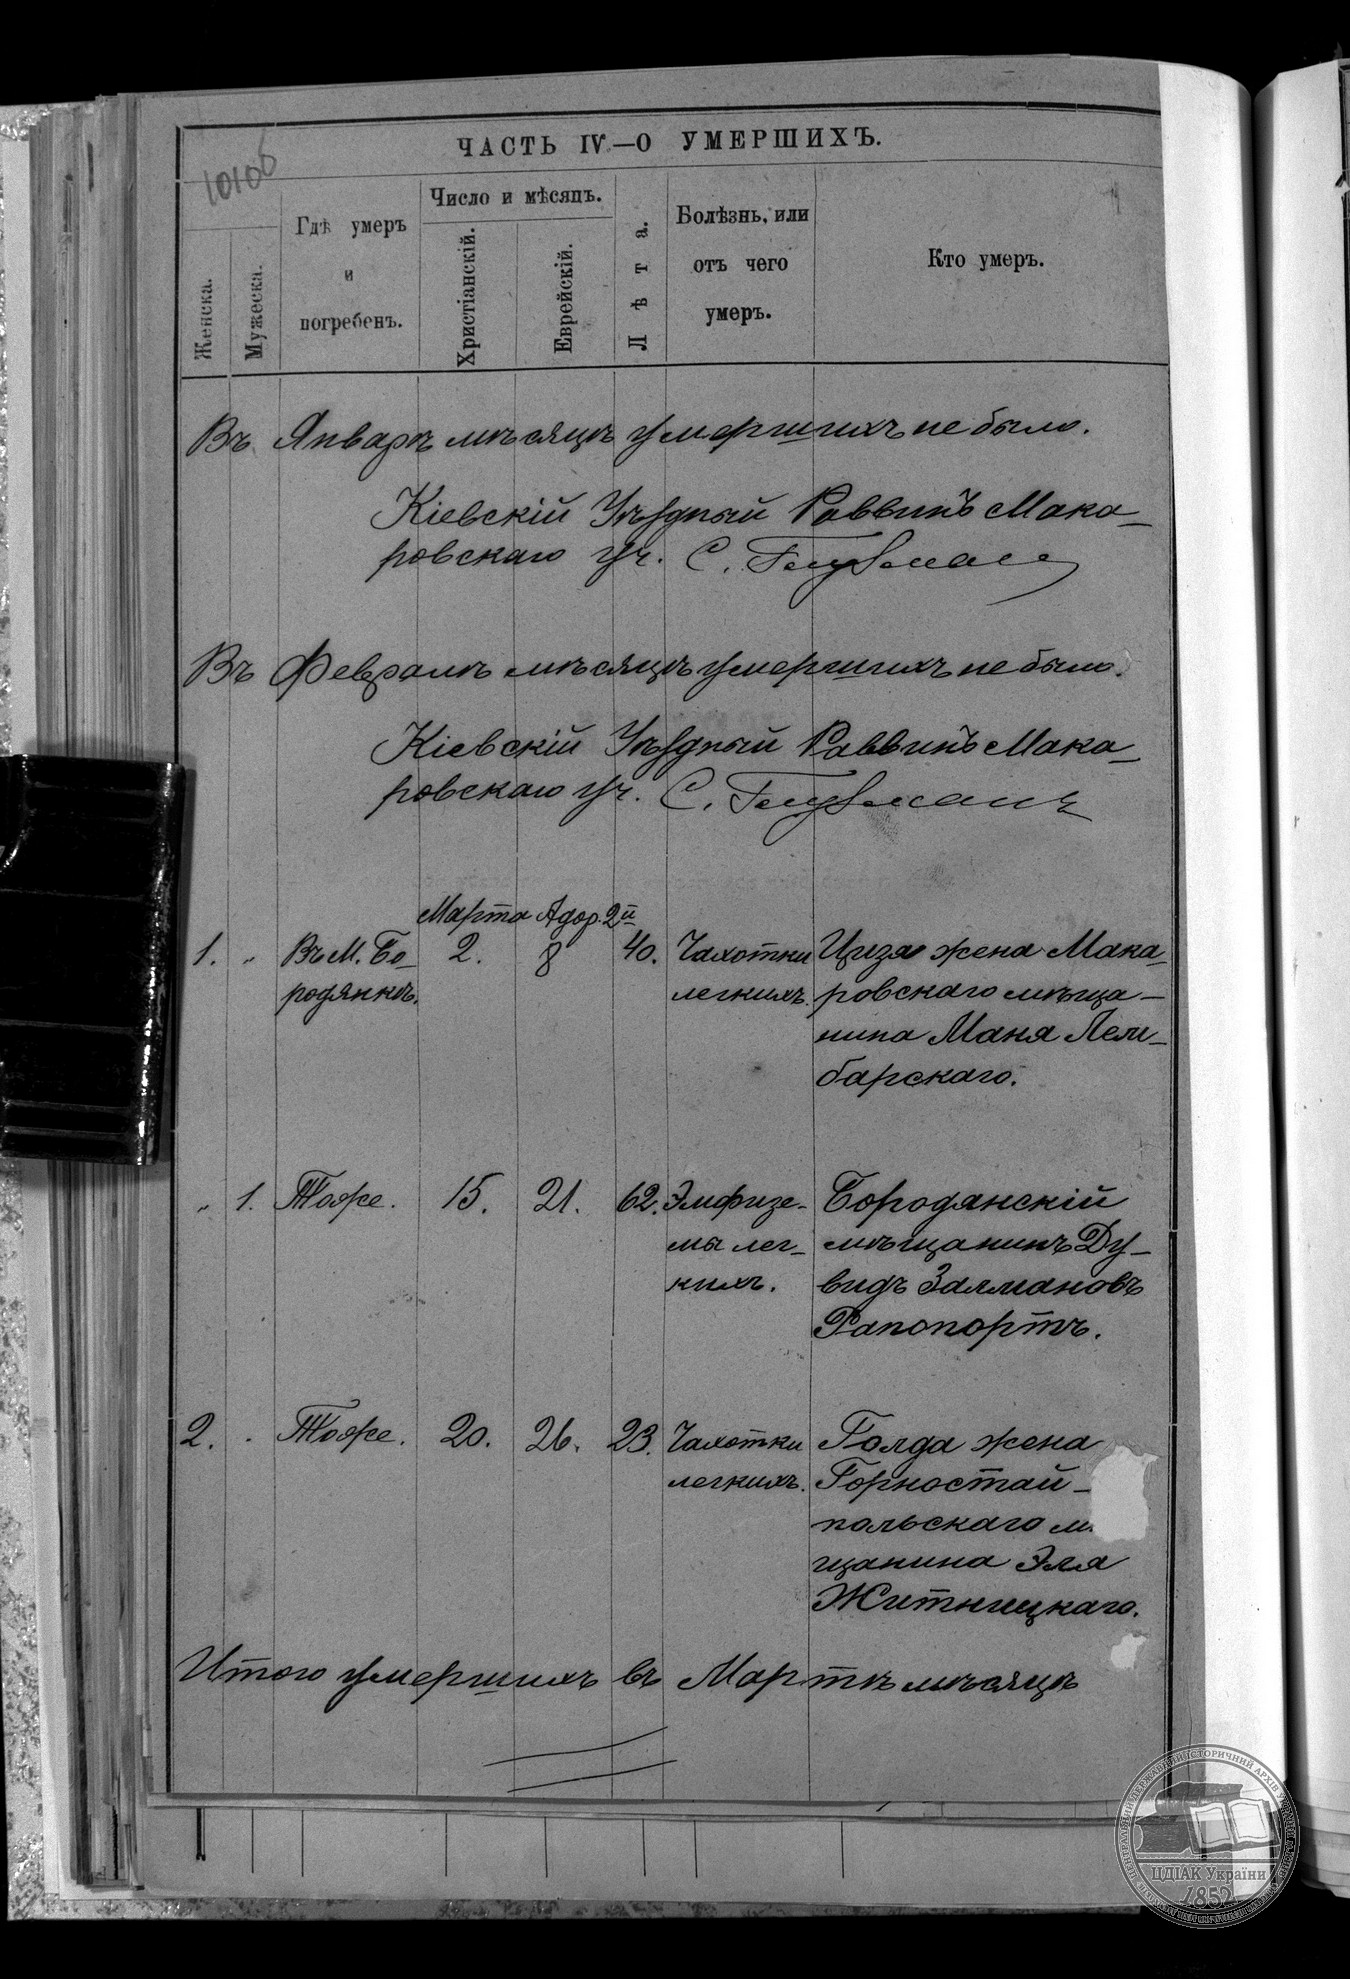 ЧАСТЬ IV.—О УМЕРШИХЪ.
Женска.
Мужеска.
Гдѣ умеръ
и
погребенъ.
Число и мѣсяцъ.
Христіанскій.
Еврейскій.
Лѣта.
Болѣзнь, или
отъ чего
умеръ.
Кто умеръ.
Въ Январѣ мѣсяцѣ умершихъ не было.
Кіевскій Уѣздный Раввинъ Мака-
ровскаго уч. С.
Въ Февралѣ мѣсяцѣ умершихъ не было.
Кіевскій Уѣздный Раввинъ Мака-
ровскаго уч. С.
Марта Адор. 2й
1. „ Въ М. Бо- 2. 8 40. Чахотки Цизя жена Мака-
родянкѣ. легкихъ. ровскаго мѣща-
нина Маня Лем-
барскаго.
„ 1. Тоже. 15. 21. 62. Эмфизе- Бородянскій
мы лег- мѣщанинъ Ду-
кихъ. видъ Залмановъ
Рапопортъ.
2. „ Тоже. 20. 26. 23. Чахотки Голда жена
легкихъ. Горностай-
польскаго м
щанина Эля
Житницкаго.
Итого умершихъ въ Мартѣ мѣсяцѣ
ЦДІАК України
1852